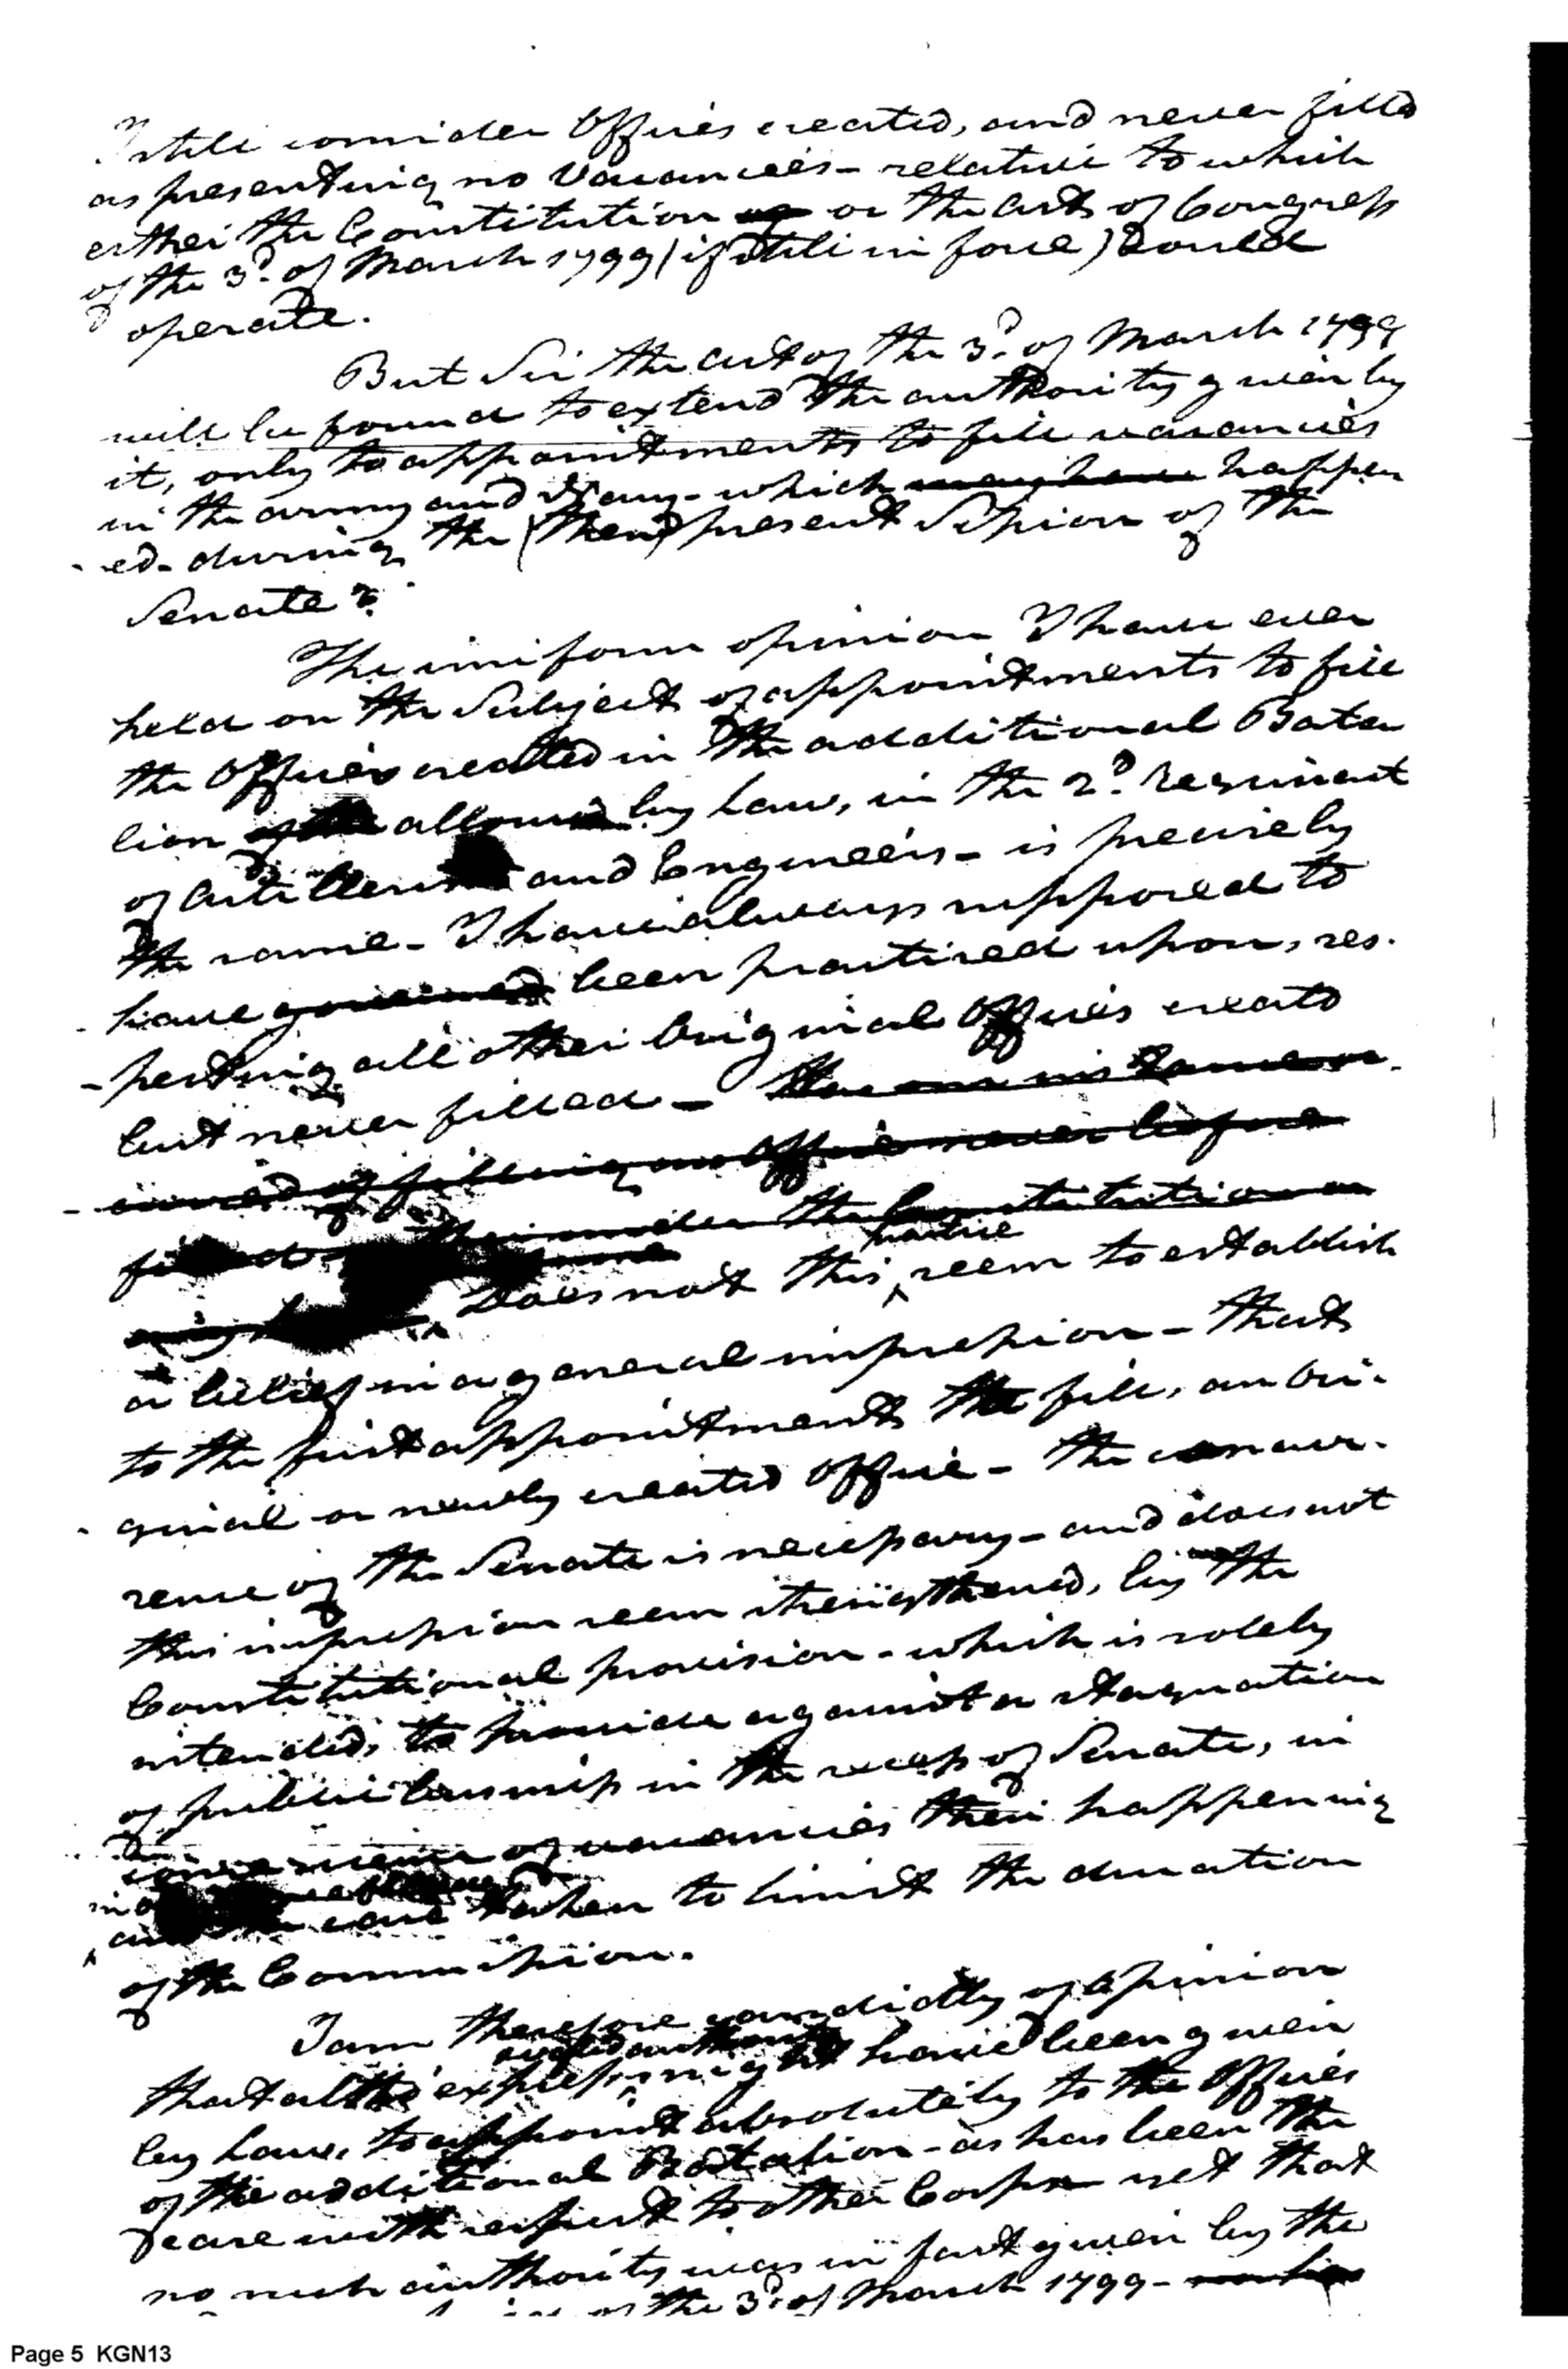 I still consider Offices created, and never filled
as presenting no Vacancies - relative to which
either the Constitution or the Acts of Congress
of the 3d. of March 1799 (if still in force) could
operate.
But Sir the act of the 3d. of March 1799
will be found to extend the authority given by
it, only to appointments to fill vacancies
in the army and Navy - which may have happen
ed - during the (then) present Session of the
Senate?
The uniform opinion I have ever
held on the Subject of appointments to fill
the Offices created in the additional Batal
lion of the allowed by Law, in the 2d. regiment
of Artillerists and Engineers - is precisely
the same - I have always supposed to
have governed been practised upon, res-
-pecting all other Original Offices created
but never filled - 
of filling an Office never before
filled under the Constitution or
any Does not this practice seem to establish
a belief in a general impression - that
to the first appointments to fill, an Ori-
-ginal or newly created Office - the concur-
rence of the Senate is necessary - and does not
this impression seem strengthened, by the
Constitutional provision - which is solely
intended, to provide against a stagnation
of public business in the recess of Senate, in
consequence of vacancies then happening
in
care taken to limit the duration
of the Commission.
I am therefore candidly of Opinion
that altho' express authority might have been given
by Law, to appoint absolutely to the Offices
of the additional Batalion - as has been the
case with respect to other Corps yet that
no such authority was in fact given by the
of the 3d. of March 1799 -
Page 5 KGN13